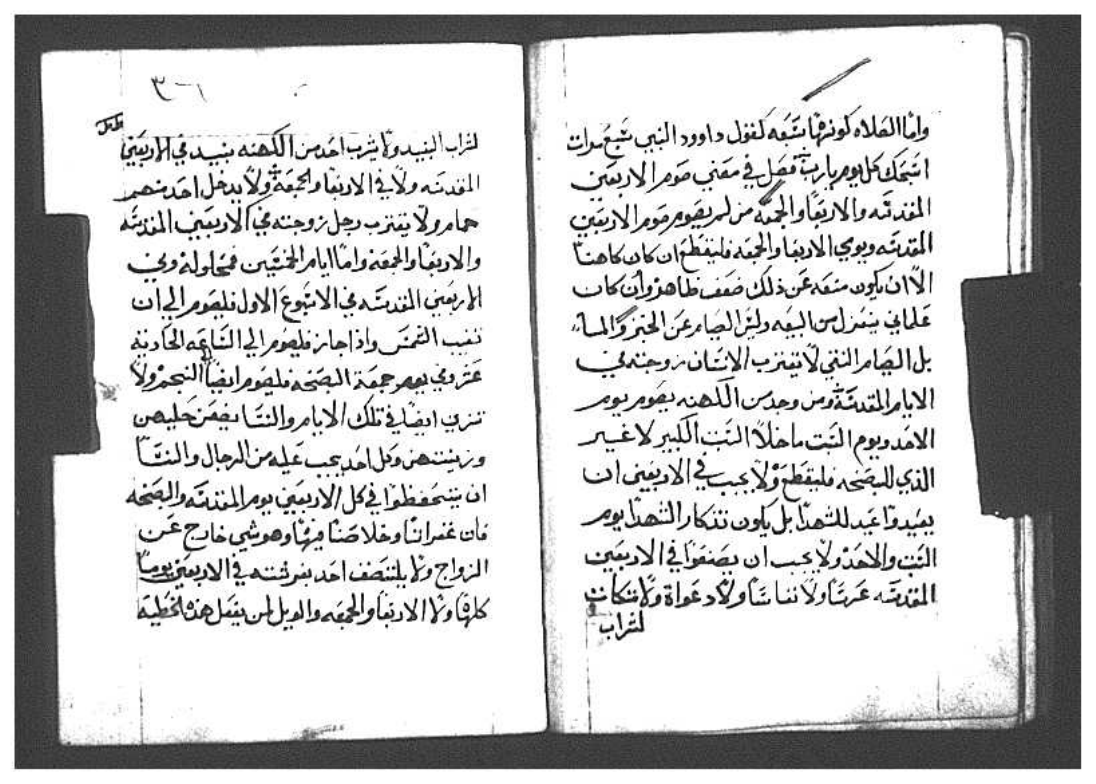 واما الصلاه كونها سبعه كقول داوود النبي سبع مرات
اسبحك كل يوم يا رب فصل في معني صوم الاربعين
المقدسه والاربعا والجمعه من لم يصوم صوم الاربعين
المقدسه ويومي الاربعا والجمعه فليقطع ان كان كاهنا
الا ان يكون منعه عن ذلك ضعف ظاهر وان كان
علماني ينزل من البيعه وليس الصيام عن الخبز والما
بل الصيام النقي لا يقترب الانسان زوجته في
الايام المقدسة ومن وجد من الكهنه يصوم يوم
الاحد ويوم السبت ما خلا السبت الكبير لا غير
الذي للبصخه فليقطع ولا يجب في الاربعين ان
يعيدوا عيد للشهدا بل يكون تذكار الشهدا يوم
السبت والاحد ولا يجب ان يصنعوا في الاربعين
المقدسه عرسا ولا نفاسا ولا دعواة ولا متكات
لشراب
٣٦١
لشراب النبيد ولا يشرب احد من الكهنه نبيد في الاربعين
المقدسه ولا في الاربعا والجمعة ولا يدخل احد منهم
حمام ولا يقترب رجل زوجته في الاربعين المقدسه
والاربعا والجمعه واما ايام الخمسين فمحلوله وفي
الاربعين المقدسه في الاسبوع الاول فليصوم الي ان
تغيب الشمس واذا جاز فليصوم الي الساعه الحادية
عشر وفي يوم جمعة البصخه فليصوم ايضا النجم ولا
تزين ايضا في تلك الايام والنسا يضعن حليهن
وزينتهن وكل احد يجب عليه من الرجال والنسا
ان يتحفظوا في كل الاربعين يوم المقدسه والبصخه
فان غفراننا وخلاصنا فيها وهو شي خارج عن
الزواج ولا يلتصف احد بفرشته في الاربعين يوما
كلها ولا الاربعا والجمعه والويل لمن يفعل هذه الخطية